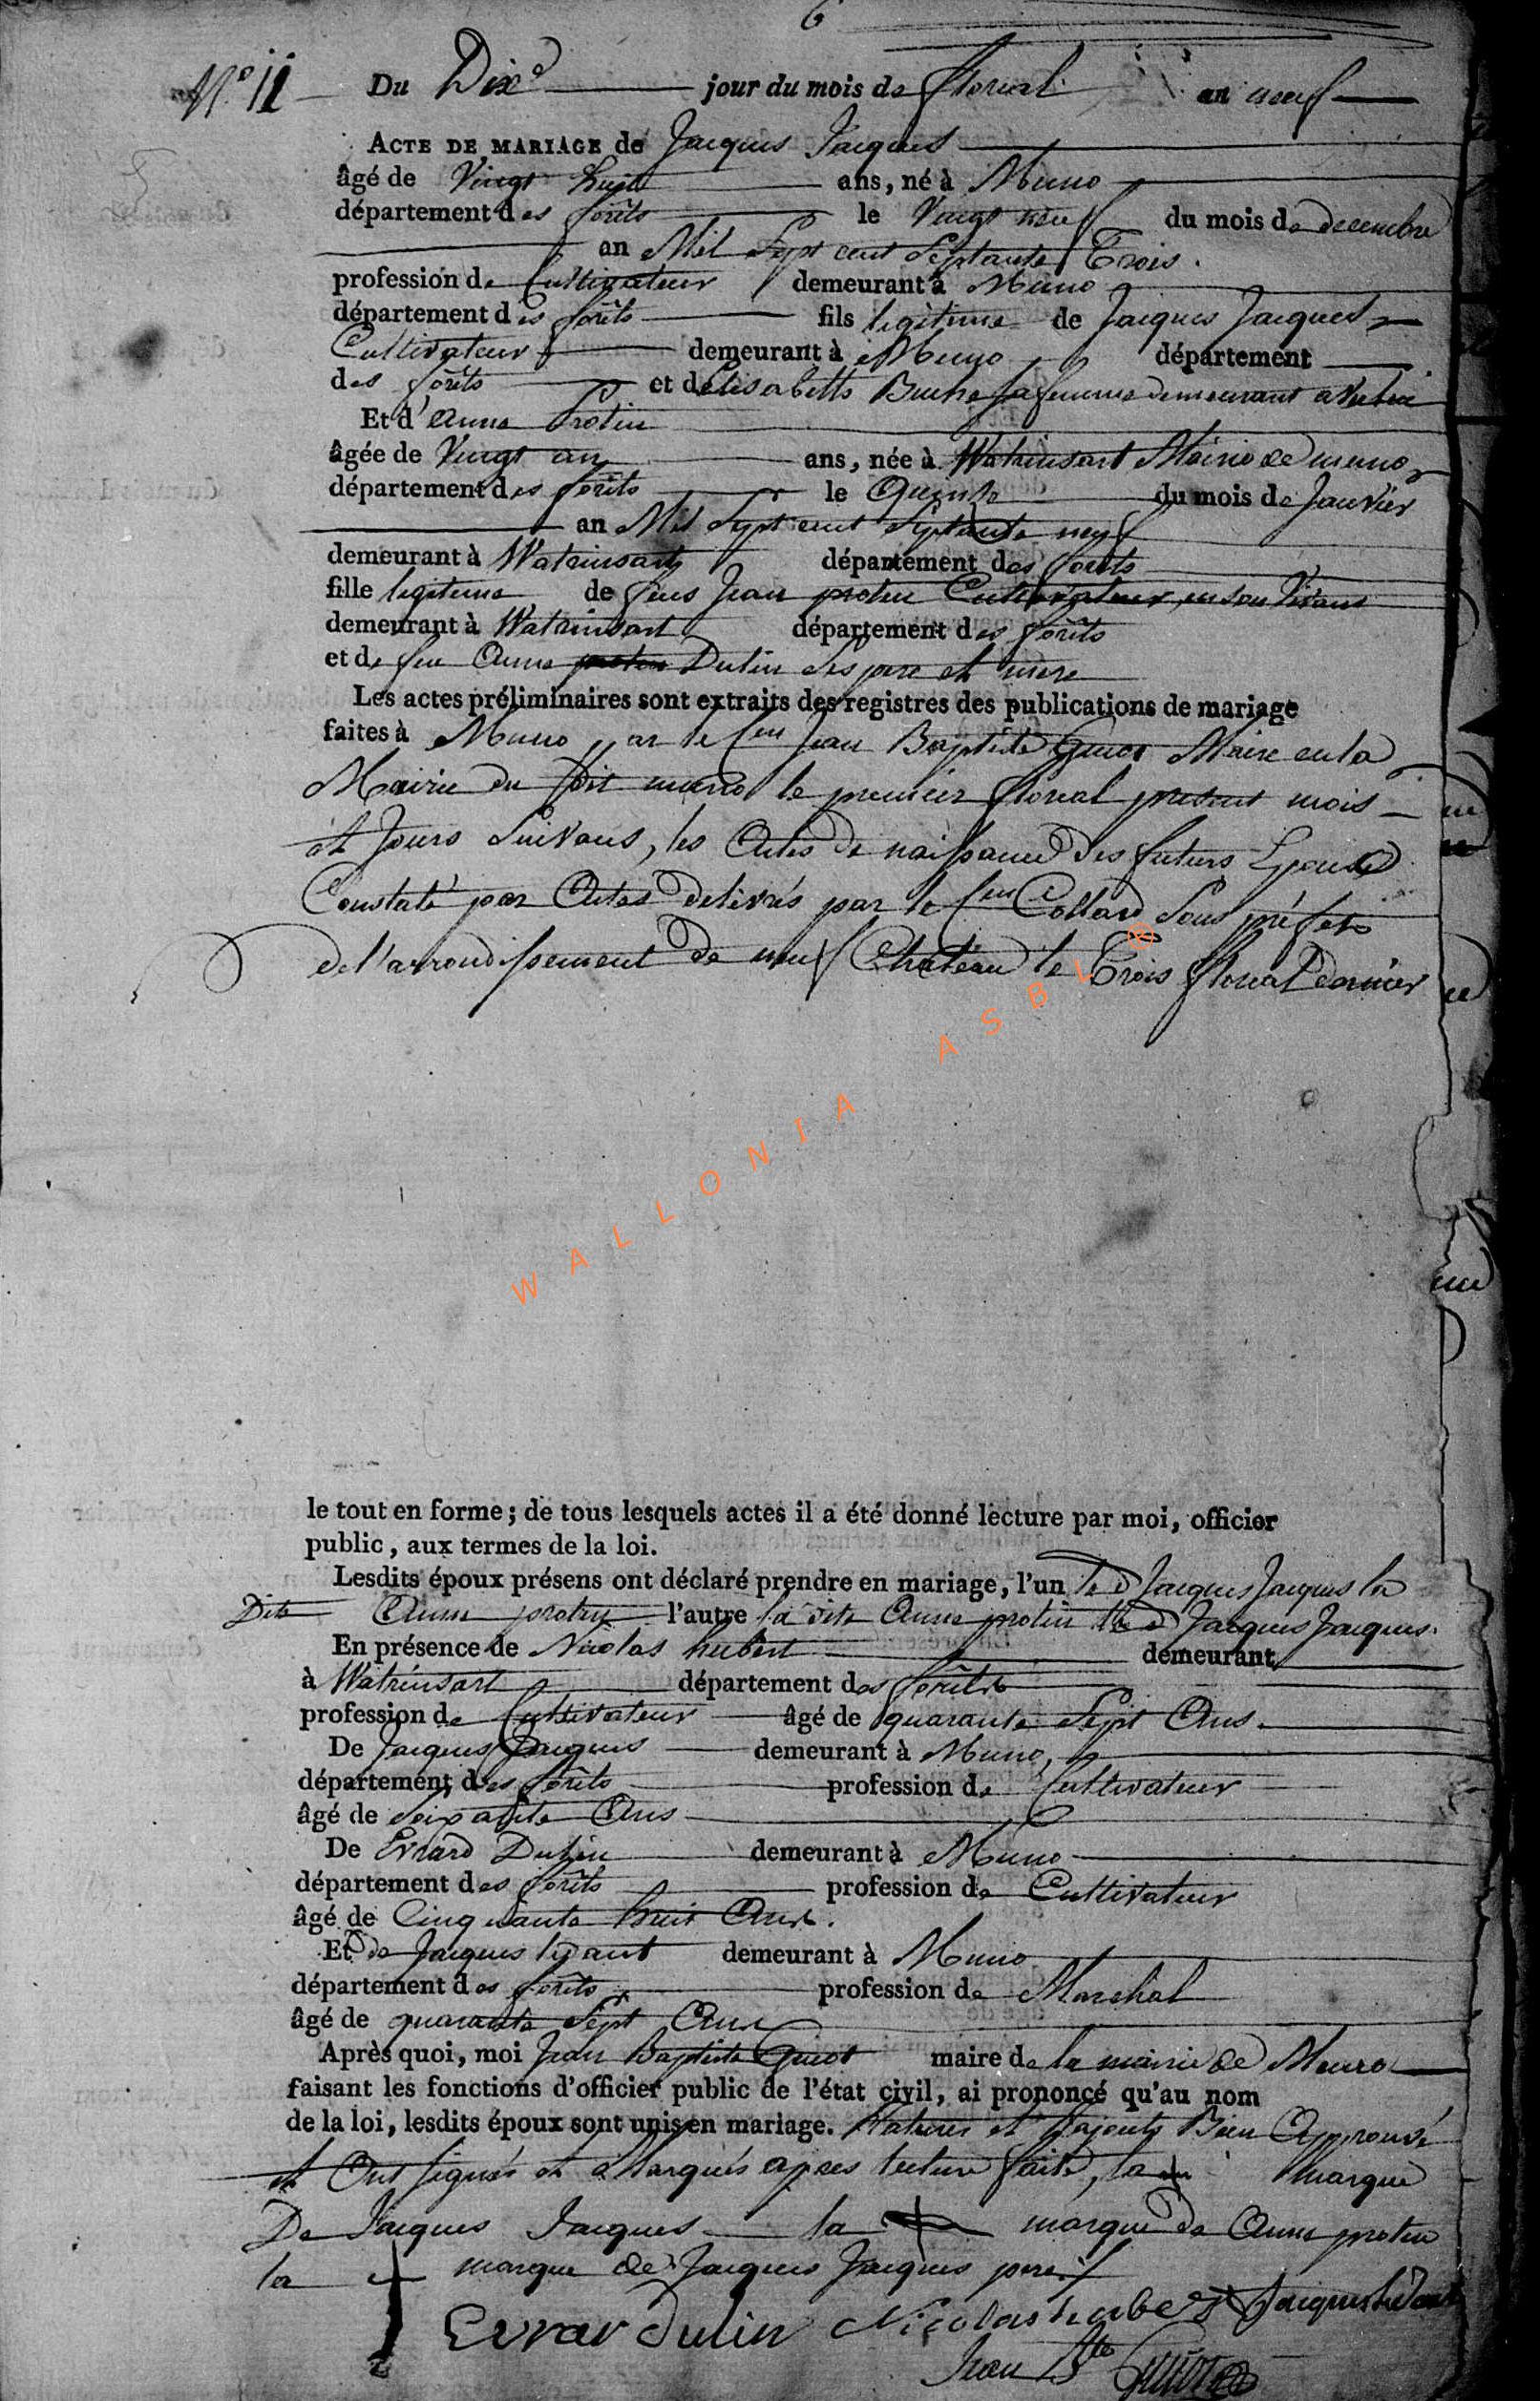 6
N.° 11 Du Dix jour du mois de floreal an neuf
ACTE DE MARIAGE de Jacques Jacques
âgé de Vingt huit ans, né à Muno
département des forêts le Vingt neuf du mois de decembre
an Mil Sept cent Septante Trois.
profession de Cultivateur demeurant à Muno
département des forêts fils legitime de Jacques Jacques
Cultivateur demeurant à Muno département
des forêts et d'Elisabette sa femme demeurant a
Et d'Anne Protin
âgée de Vingt an ans, née à Watrinsart Mairie de muno
département des forêts le Quinse du mois de Janvier
an Mil Sept cent Septante neuf
demeurant à Watrinsart département des forêts
fille legitime de feus Jean protin Cultivateur en son Vivant
demeurant à Watrinsart département des forêts
et de feu Anne protin Dulin ses pere et mere
Les actes préliminaires sont extraits des registres des publications de mariage
faites à Muno par le Jean Baptiste Guiot Maire en la
Mairie du dit muno le premier floreal present mois
et Jours Suivans, les Actes de naissance des futurs Epoux
Constaté par Actes delivrés par le Collard Sous préfet
de l'arrondissement de neuf Chateau le Trois floreal dernier
WALLONIA ASBL ®
le tout en forme; de tous lesquels actes il a été donné lecture par moi, officier
public, aux termes de la loi.
Lesdits époux présens ont déclaré prendre en mariage, l'un le d Jacques Jacques la
Dite Anne protin l'autre la dite Anne protin le d Jacques Jacques.
En présence de Nicolas hubert demeurant
à Watrinsart département des forêts
profession de Cultivateur âgé de quarante Sept Ans.
De Jacques Jacques demeurant à Muno,
département des forêts profession de Cultivateur
âgé de Soixante Ans
De Evrard Dulin demeurant à Muno
département des forêts profession de Cultivateur
âgé de Cinquante huit Ans.
Et de Jacques demeurant à Muno
département des forêts profession de Marchal
âgé de quarante Sept Ans
Après quoi, moi Jean Baptiste Guiot maire de la mairie de Muno
faisant les fonctions d'officier public de l'état civil, ai prononcé qu'au nom
de la loi, lesdits époux sont unis en mariage. Ratures et Bien Approuvé
et Ont signés et Marqués apres lecture faite, la marque
De Jacques Jacques la marque de Anne protin
la marque de Jacques Jacques pere
Evrar dulin Nicolas hubert Jacques
Jean Bte Guiot